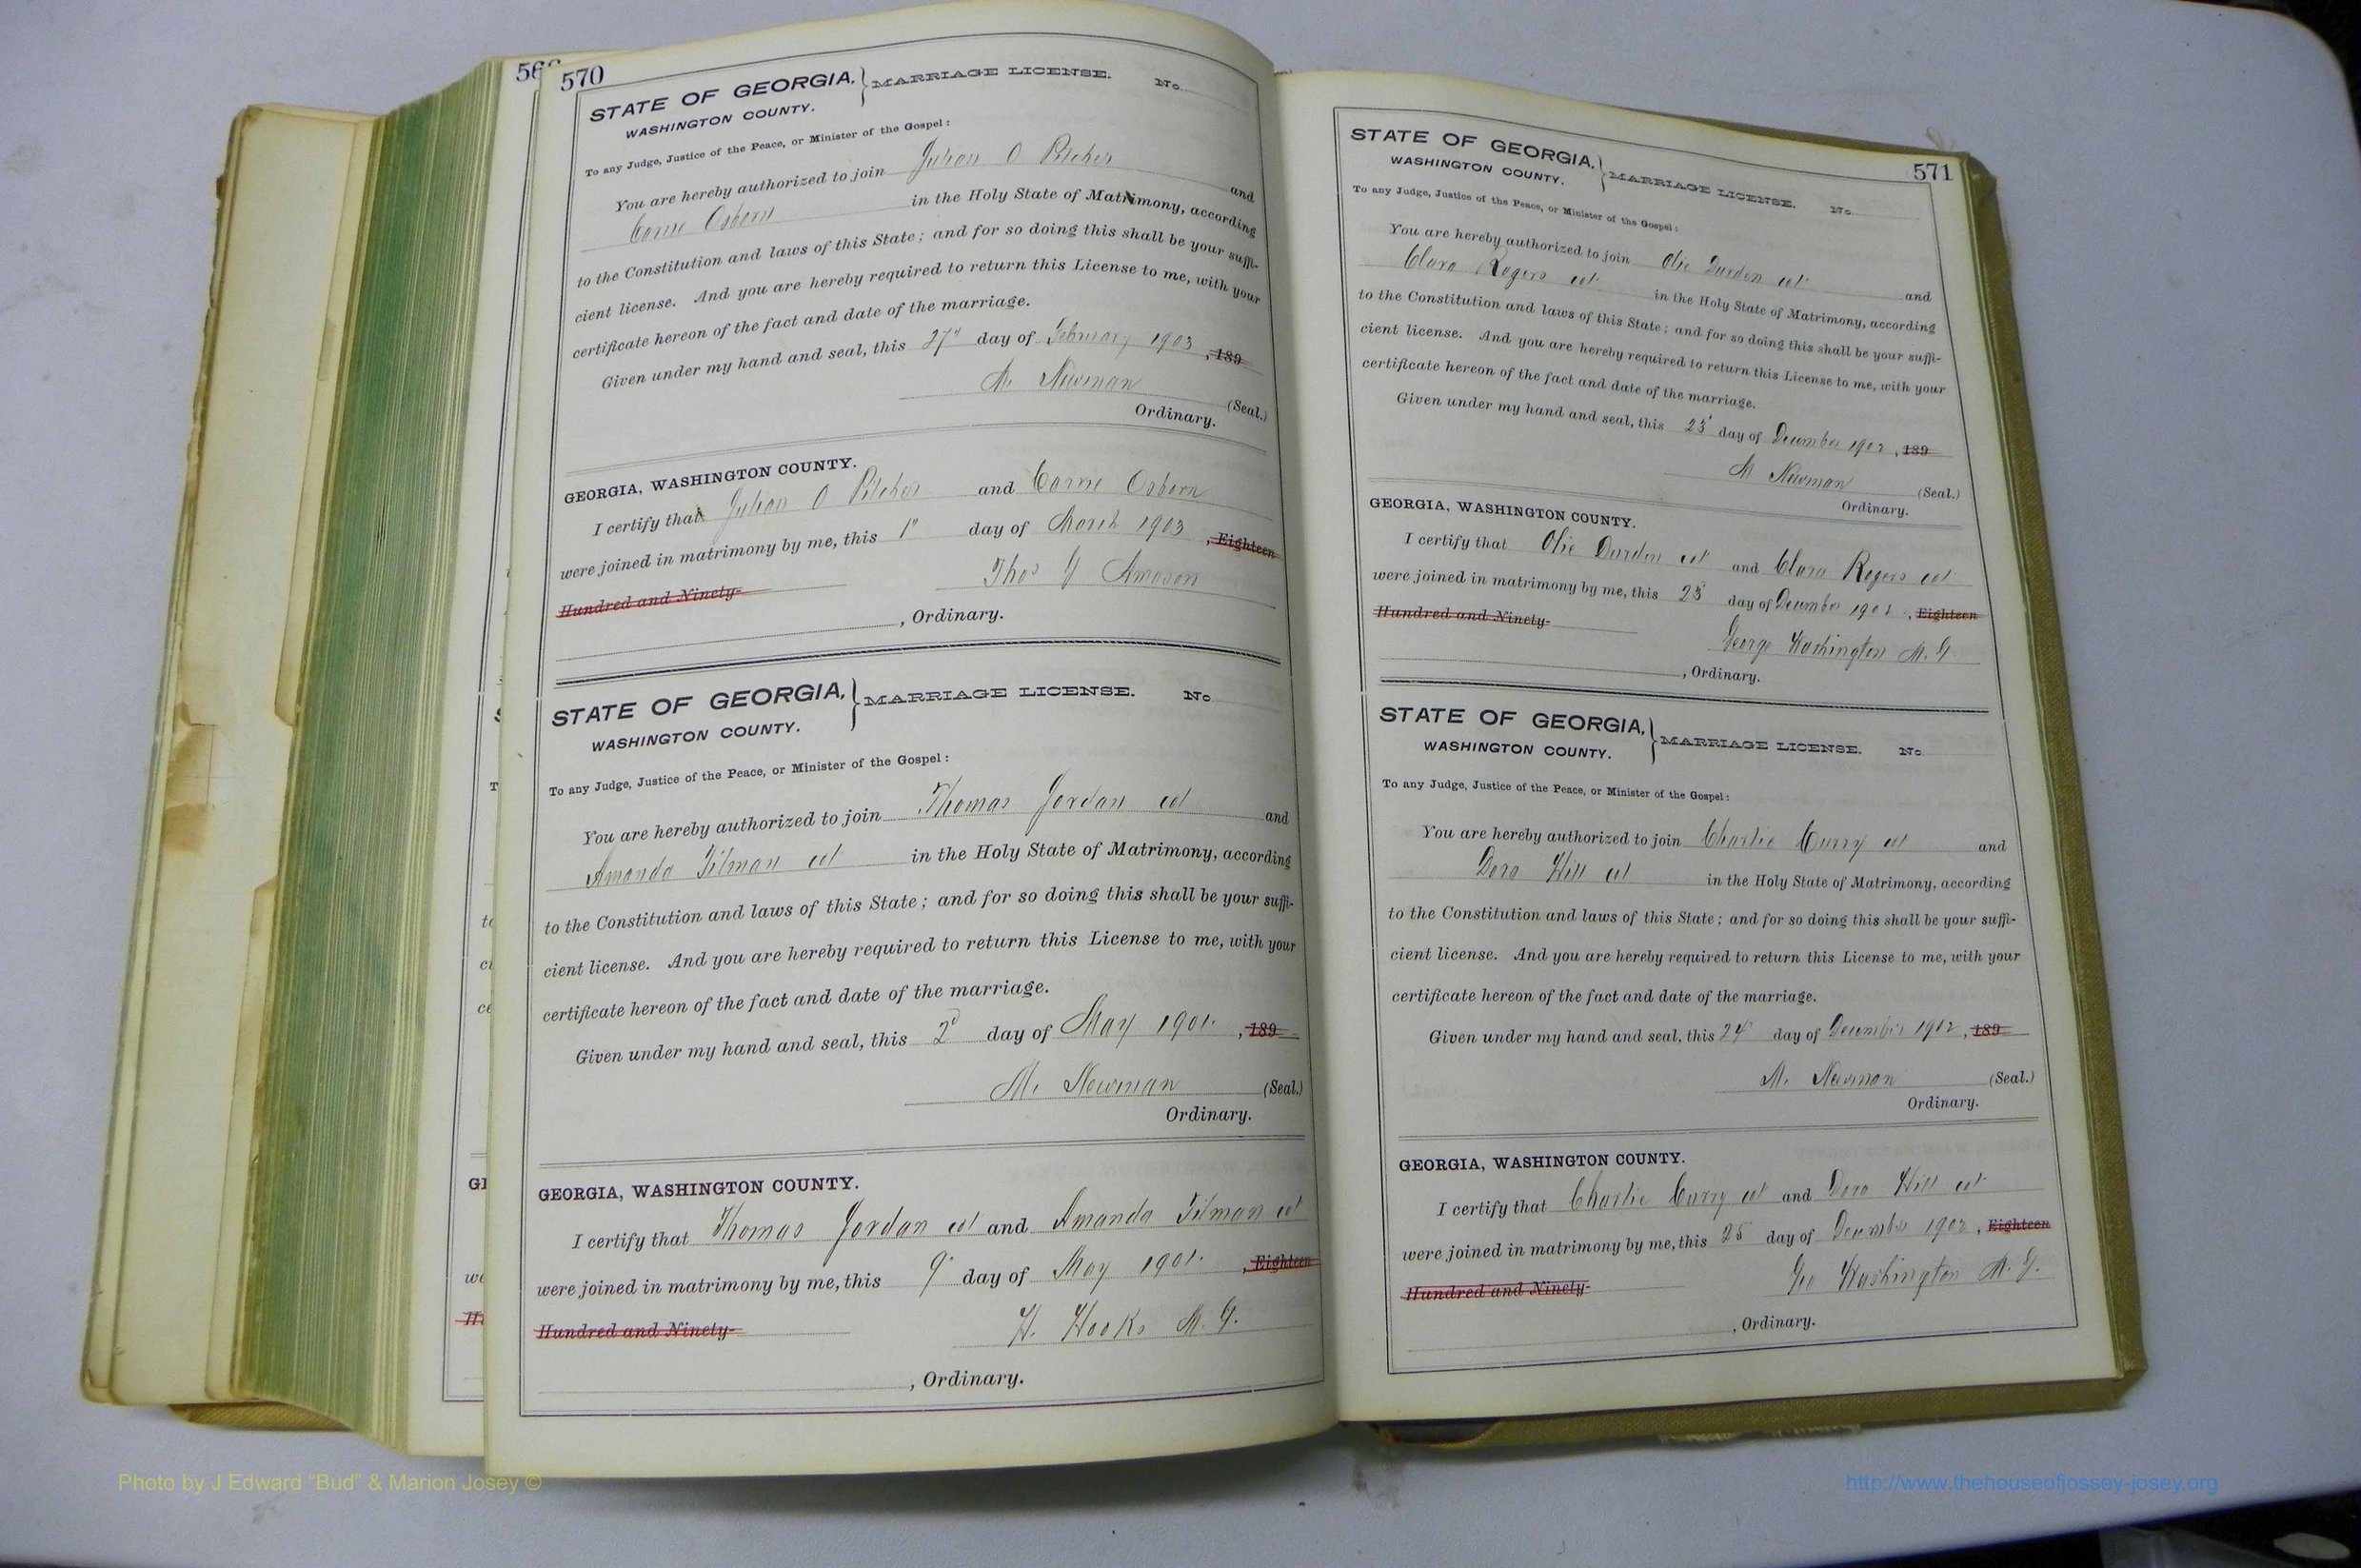 570
STATE OF GEORGIA, } MARRIAGE LICENSE. No.
WASHINGTON COUNTY.
To any Judge, Justice of the Peace, or Minister of the Gospel:
You are hereby authorized to join Julian O Pilcher and
Corrie Osborn in the Holy State of Matrimony, according
to the Constitution and laws of this State; and for so doing this shall be your suffi-
cient license. And you are hereby required to return this License to me, with your
certificate hereon of the fact and date of the marriage.
Given under my hand and seal, this 27" day of February 1903, 189
M. Newman (Seal.)
Ordinary.
GEORGIA, WASHINGTON COUNTY.
I certify that Julian O Pilcher and Corrie Osborn
were joined in matrimony by me, this 1" day of March 1903, Eighteen
Hundred and Ninety- Thos J Amason
, Ordinary.
STATE OF GEORGIA, } MARRIAGE LICENSE. No
WASHINGTON COUNTY.
To any Judge, Justice of the Peace, or Minister of the Gospel:
You are hereby authorized to join Thomas Jordan col and
Amanda Tilman col in the Holy State of Matrimony, according
to the Constitution and laws of this State; and for so doing this shall be your suffi-
cient license. And you are hereby required to return this License to me, with your
certificate hereon of the fact and date of the marriage.
Given under my hand and seal, this 2d day of May 1901, 189
M. Newman (Seal.)
Ordinary.
GEORGIA, WASHINGTON COUNTY.
I certify that Thomas Jordan col and Amanda Tilman col
were joined in matrimony by me, this 9 day of May 1901, Eighteen
Hundred and Ninety- H. Hooks M. G.
, Ordinary.
571
STATE OF GEORGIA, } MARRIAGE LICENSE. No
WASHINGTON COUNTY.
To any Judge, Justice of the Peace, or Minister of the Gospel:
You are hereby authorized to join Olie Durden col and
Clara Rogers col in the Holy State of Matrimony, according
to the Constitution and laws of this State; and for so doing this shall be your suffi-
cient license. And you are hereby required to return this License to me, with your
certificate hereon of the fact and date of the marriage.
Given under my hand and seal, this 23 day of December 1902, 189
M Newman (Seal.)
Ordinary.
GEORGIA, WASHINGTON COUNTY.
I certify that Olie Durden col and Clara Rogers col
were joined in matrimony by me, this 25 day of December 1902, Eighteen
Hundred and Ninety- George Washington M. G
, Ordinary.
STATE OF GEORGIA, } MARRIAGE LICENSE. No
WASHINGTON COUNTY.
To any Judge, Justice of the Peace, or Minister of the Gospel:
You are hereby authorized to join Charlie Curry col and
Dora Hill col in the Holy State of Matrimony, according
to the Constitution and laws of this State; and for so doing this shall be your suffi-
cient license. And you are hereby required to return this License to me, with your
certificate hereon of the fact and date of the marriage.
Given under my hand and seal, this 24" day of December 1902, 189
M. Newman (Seal.)
Ordinary.
GEORGIA, WASHINGTON COUNTY.
I certify that Charlie Curry col and Dora Hill col
were joined in matrimony by me, this 25 day of December 1902, Eighteen
Hundred and Ninety- Geo Washington M. G.
, Ordinary.
Photo by J Edward "Bud" & Marion Josey ©
http://www.thehouseofjossey-josey.org